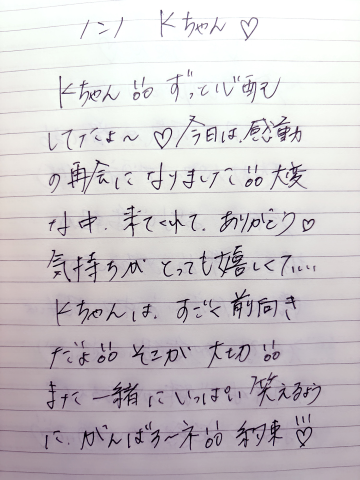 Kちゃん♡
Kちゃん!! ずっと心配も
してたよ〜♡今日は、感動
の再会になりました!!大変
な中、来てくれて、ありがとう♡
気持ちが とっても嬉しくて…
Kちゃんは、すごく前向き
だよ!! そこが 大切!!
また 一緒に いっぱい 笑えるよう
に、がんばろ〜ネ!! 約束♡